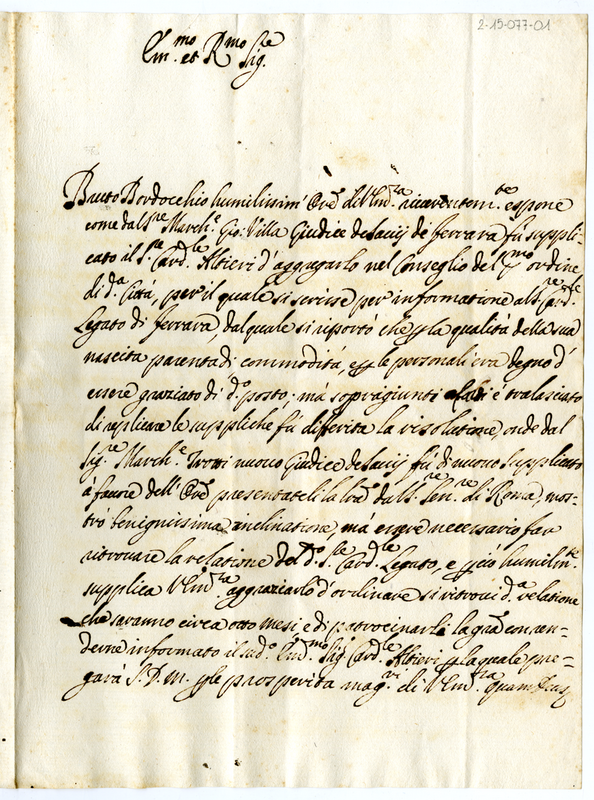 2-15-077-01
Em.mo et R.mo Sig.re
Bruto Bordocchio humilissim' Ore dell'Em.za riverentem.te espone
come dal S.re March.e Gio: Villa Giudice de Savij di ferrara fù suppli-
cato il S.re Card.le Altieri d'aggragarlo nel Conseglio del p.mo ordine
di d.a Città, per il quale si scrisse per informatione al S.re Card.le
Legato di ferrara, dal quale si riportò che p la qualità della sua
nascita parentadi commodità, e p le personali era degno d'
essere graziato di d.o posto, mà sopragiunti è tralasciato
di replicare le suppliche fù differita la risolatione, onde dal
Sig.re March.e Trotti nuovo Giudice de Savij fù di nuovo supplicato
à favore dell'Ore presentateli la dal S. di Roma, mos-
trò benignissima inclinatione, mà essere necessario far
ritrovare la relatione del d.o S.re Card.le Legato, e p ciò humilm.te
supplica V Em.za aggraziarlo d'ordinare si ritrovi d.a relatione
che saranno circa otto mesi e di patrocinarli la gra con ren-
derne informato il sud.o Em.mo Sig. Card.le Altieri p la quale pre-
garà S. D. M. p le prosperità mag.ri di V Em.za quam Deus